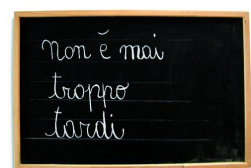 non è mai
troppo
tardi